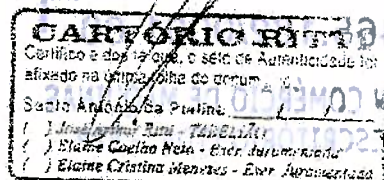 CARTÓRIO RITTI
Certifico e dou fé que, o selo de Autenticidade foi
afixado na última folha do docum
Santo Antônio da Platina / /
( ) Ritti - TABELIÃO
( ) Elaine Coelho Neto - Escr. Juramentada
( ) Elaine Cristina Menezes - Escr. Juramentada
COMÉRCIO DE
ESCRITÓRIO